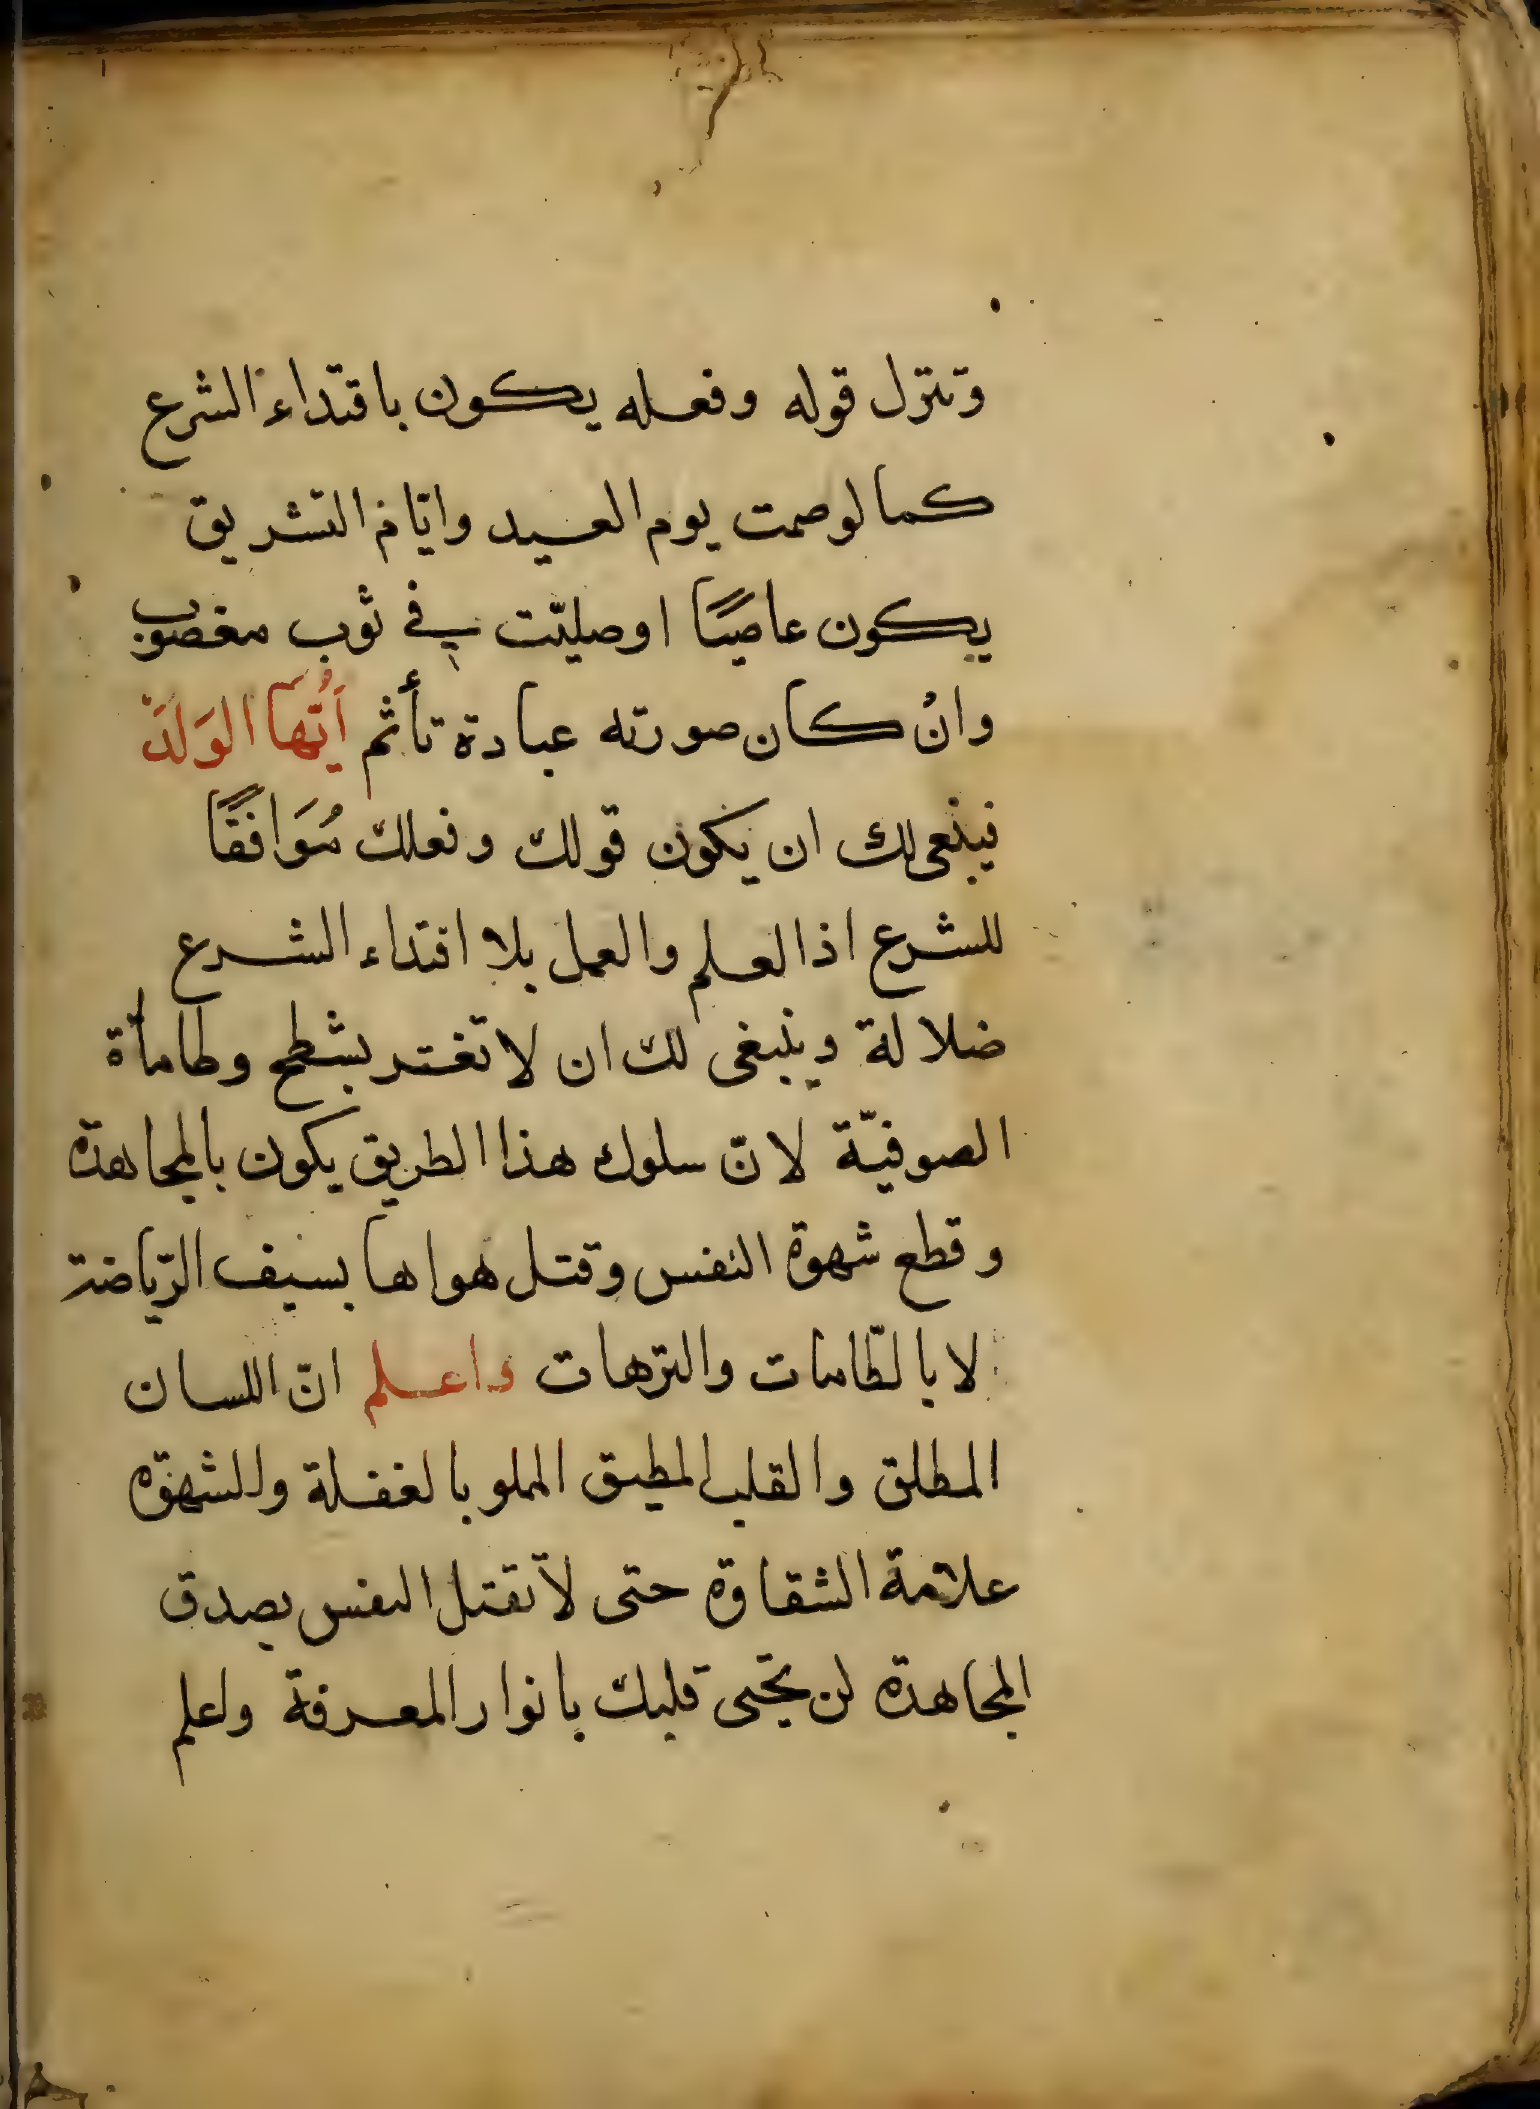 وتترل قوله وفعله يكون باقتداء الشرع
كما لوصمت يوم العيد وايّام التشريق
يكون عاصيًا اوصليّت في ثوب مغصوب
وانْ كان صورته عبادة تأثم اَيُّهَا الوَلَدْ
فينبغى لك ان يكون قولك وفعلك مُوَافقًا
للشرع اذ العلم والعمل بلا اقتداء الشرع
ضلالة وينبغى لك ان لا تغتر بشطح وطامأة
الصوفيّة لانّ سلوك هذا الطريق يكون بالمجاهدة
وقطع شهوة النفس وقتل هواها بسيف الرّياضة
لا بالطّامات والترهات واعلم انّ اللسان
المطلق والقلب المطبق المملو بالغفلة وللشهوة
علامة الشقاوة حتى لا تقتل النفس بصدق
المجاهدة لن يحيى قلبك بانوار المعرفة واعلم